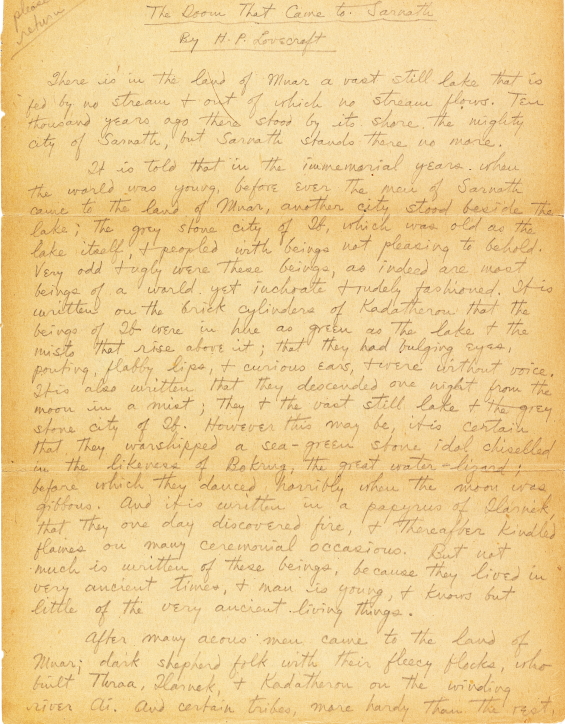 please
return
The Doom That Came to Sarnath
By H. P. Lovecraft
There is in the land of Mnar a vast still lake that is
fed by no stream & out of which no stream flows. Ten
thousand years ago there stood by its shore the mighty
city of Sarnath, but Sarnath stands there no more.
It is told that in the immemorial years when
the world was young, before ever the men of Sarnath
came to the land of Mnar, another city stood beside the
lake; the grey stone city of Ib, which was old as the
lake itself, & peopled with beings not pleasing to behold.
Very odd & ugly were these beings, as indeed are most
beings of a world yet inchoate & rudely fashioned. It is
written on the brick cylinders of Kadatheron that the
beings of Ib were in hue as green as the lake & the
mists that rise above it; that they had bulging eyes,
pouting, flabby lips, & curious ears, & were without voice.
It is also written that they descended one night from the
moon in a mist; they & the vast still lake & the grey
stone city of Ib. However this may be, it is certain
that they worshipped a sea-green stone idol chiselled
in the likeness of Bokrug, the great water-lizard;
before which they danced horribly when the moon was
gibbous. And it is written in a papyrus of Ilarnek,
that they one day discovered fire, & thereafter kindled
flames on many ceremonial occasions. But not
much is written of these beings, because they lived in
very ancient times, & man is young, & knows but
little of the very ancient living things.
After many aeons men came to the land of
Mnar; dark shepherd folk with their fleecy flocks, who
built Thraa, Ilarnek, & Kadatheron on the winding
river Ai. And certain tribes, more hardy than the rest,